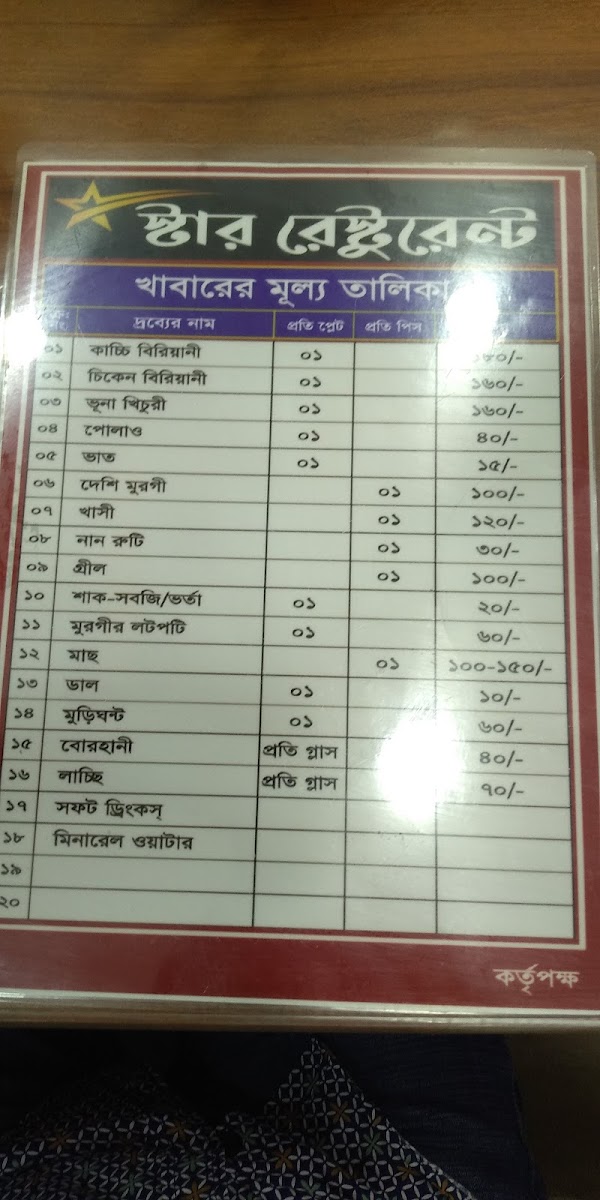 স্টার রেস্টুরেন্ট
খাবারের মূল্য তালিকা
দ্রব্যের নাম প্রতি প্লেট প্রতি পিস
০১ কাচ্চি বিরিয়ানী ০১
০২ চিকেন বিরিয়ানী ০১ ১৬০/-
০৩ ভূনা খিচুরী ০১ ১৬০/-
০৪ পোলাও ০১ ৪০/-
০৫ ভাত ০১ ১৫/-
০৬ দেশি মুরগী ০১ ১০০/-
০৭ খাসী ০১ ১২০/-
০৮ নান রুটি ০১ ৩০/-
০৯ গ্রীল ০১ ১০০/-
১০ শাক-সবজি/ভর্তা ০১ ২০/-
১১ মুরগীর লটপটি ০১ ৬০/-
১২ মাছ ০১ ১০০-১৫০/-
১৩ ডাল ০১ ১০/-
১৪ মুড়িঘন্ট ০১ ৬০/-
১৫ বোরহানী প্রতি গ্লাস ৪০/-
১৬ লাচ্ছি প্রতি গ্লাস ৭০/-
১৭ সফট ড্রিংকস্
১৮ মিনারেল ওয়াটার
১৯
২০
কর্তৃপক্ষ